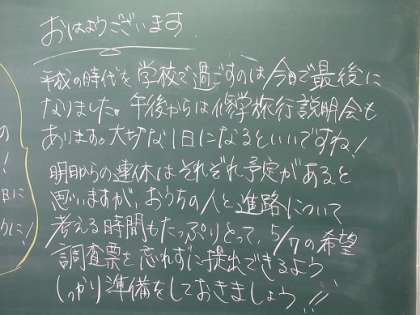 おはようございます
の
!
日に
りに!
平成の時代を学校で過ごすのは今日で最後に
なりました。午後からは修学旅行説明会も
あります。大切な1日になるといいですね!
明日からの連休はそれぞれ予定があると
思いますが、おうちの人と進路について
考える時間もたっぷりとって、5/7の希望
調査票を忘れずに提出できるよう
しっかり準備をしておきましょう!!